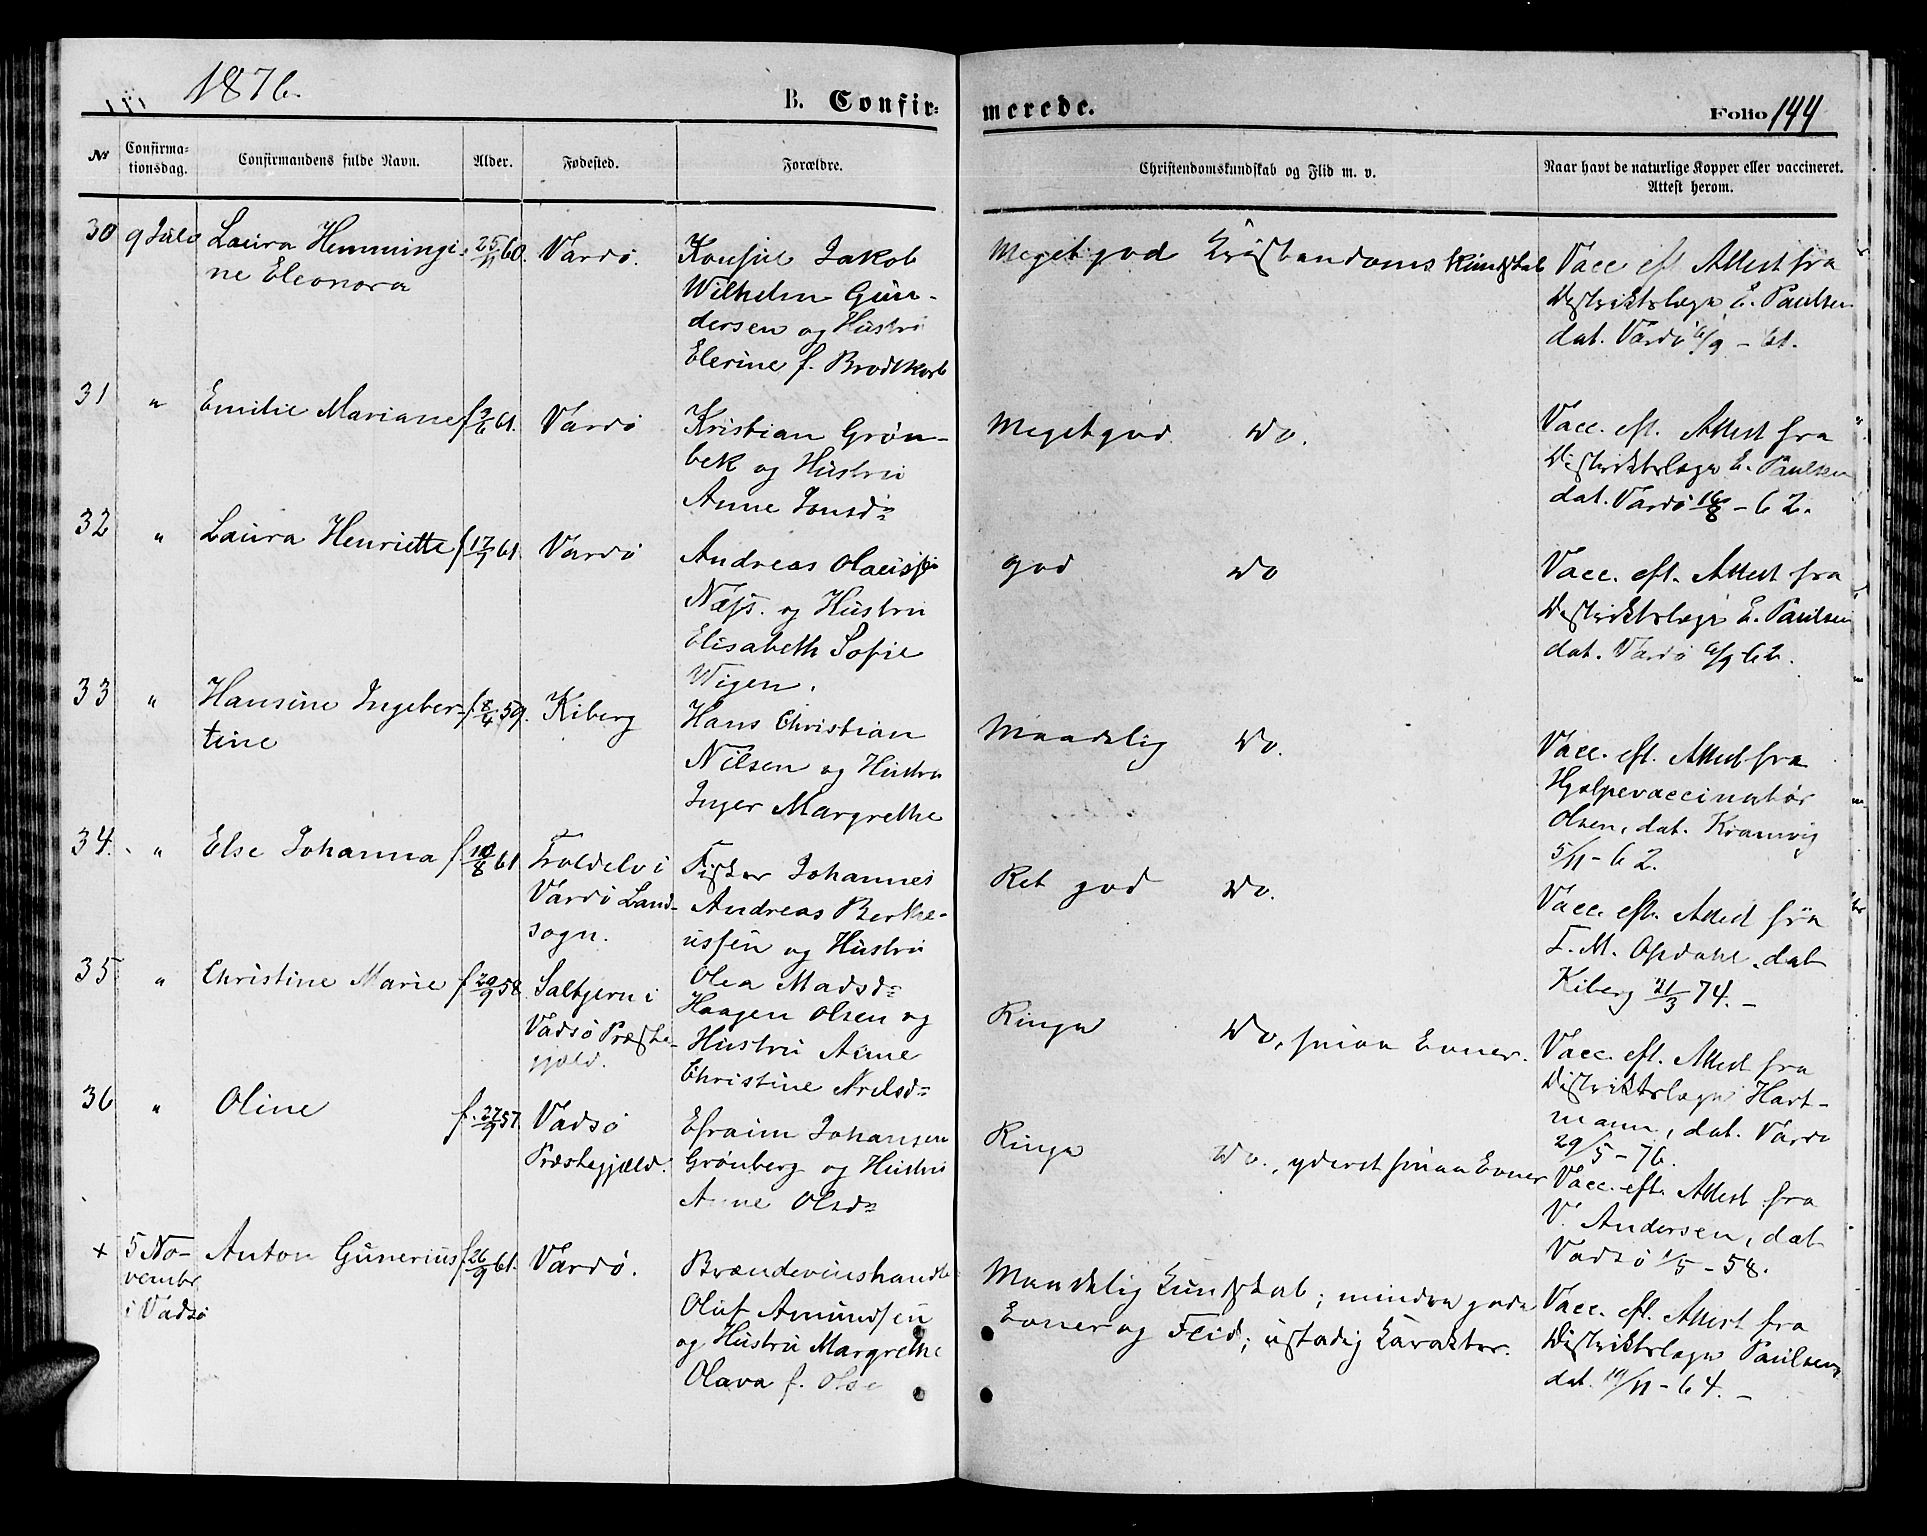 1876.
B. Confir=
merede.
Folio 144
No
Confirma-
tionsdag.
Confirmandens fulde Navn.
Alder.
Fødested.
Forældre.
Christendomskundskab og Flid m. v.
Naar havt de naturlige Kopper eller vaccineret.
Attest herom.
30 9 Juli Laura Hemmingi-
ne Eleonora
25/11 60. Vardø.
Konsul Jakob
Wilhelm Gun-
dersen og Hustru
Elerine f. Brodtkorb
Meget god Kristendomskundskab
Vacc. eft. Attest fra
Distriktslæge E. Paulsen
dat. Vardø 6/9 - 61.
31 " Emilie Mariane f. 61. Vardø
Kristian Grøn-
bek og Hustru
Anne Jonsd
Meget god Do.
Vacc. eft. Attest fra
Distriktslæge E. Paulsen
dat. Vardø 16/8 - 62.
32 " Laura Henriette f. 17/9 61. Vardø
Andreas
Næss. og Hustru
Elisabeth Sofie
Wigen.
god Do
Vacc. eft. Attest fra
Distriktslæge E. Paulsen
dat. Vardø 6/9 62.
33 " Hansine Ingeber-
tine
f. 8/4 59. Kiberg
Hans Christian
Nilsen og Hustru
Inger Margrethe
Maadelig Do.
Vacc. eft. Attest fra
Hjælpevaccinatør
Olsen, dat. Kramvig
5/11 - 62.
34. " Else Johanna f. 10/8 61
Troldelv i
Vardø Land-
sogn.
Fisker Johannes
Andreas
og Hustru
Olea Madsd
Ret god Do.
Vacc. eft. Attest fra
F. M. Opdahl, dat
Kiberg 21/3 74. -
35 " Christine Marie f. 20/9 58.
Saltjern i
Vadsø Præste-
gjæld.
Haagen Olsen og
Hustru Anne
Christine
Ringe Do, smaa Evner.
Vacc. eft. Attest fra
Distriktslæge Hart-
mann, dat. Vardø
29/5 - 76.
36 " Oline f. 27/9 57.
Vadsø
Præstegjæld.
Efraim Johansen
Grønberg og Hustru
Anne Olsd
Ringe Do., yderst smaa Evner
Vacc. eft. Attest fra
V. Andersen, dat
Vadsø 1/5 - 58.
+ 5 No-
vembr
i Vadsø
Anton Gunerius f. 26/9 61. Vardø.
Brændevinshandl
Oluf Amundsen
og Hustru Margrethe
Olava f. Olse
Maadelig Kundskab; mindre gode
Evner og Flid; ustadig Karakter.
Vacc. eft. Attest fra
Distriktslæge Paulsen,
dat. 10/11 - 64. -